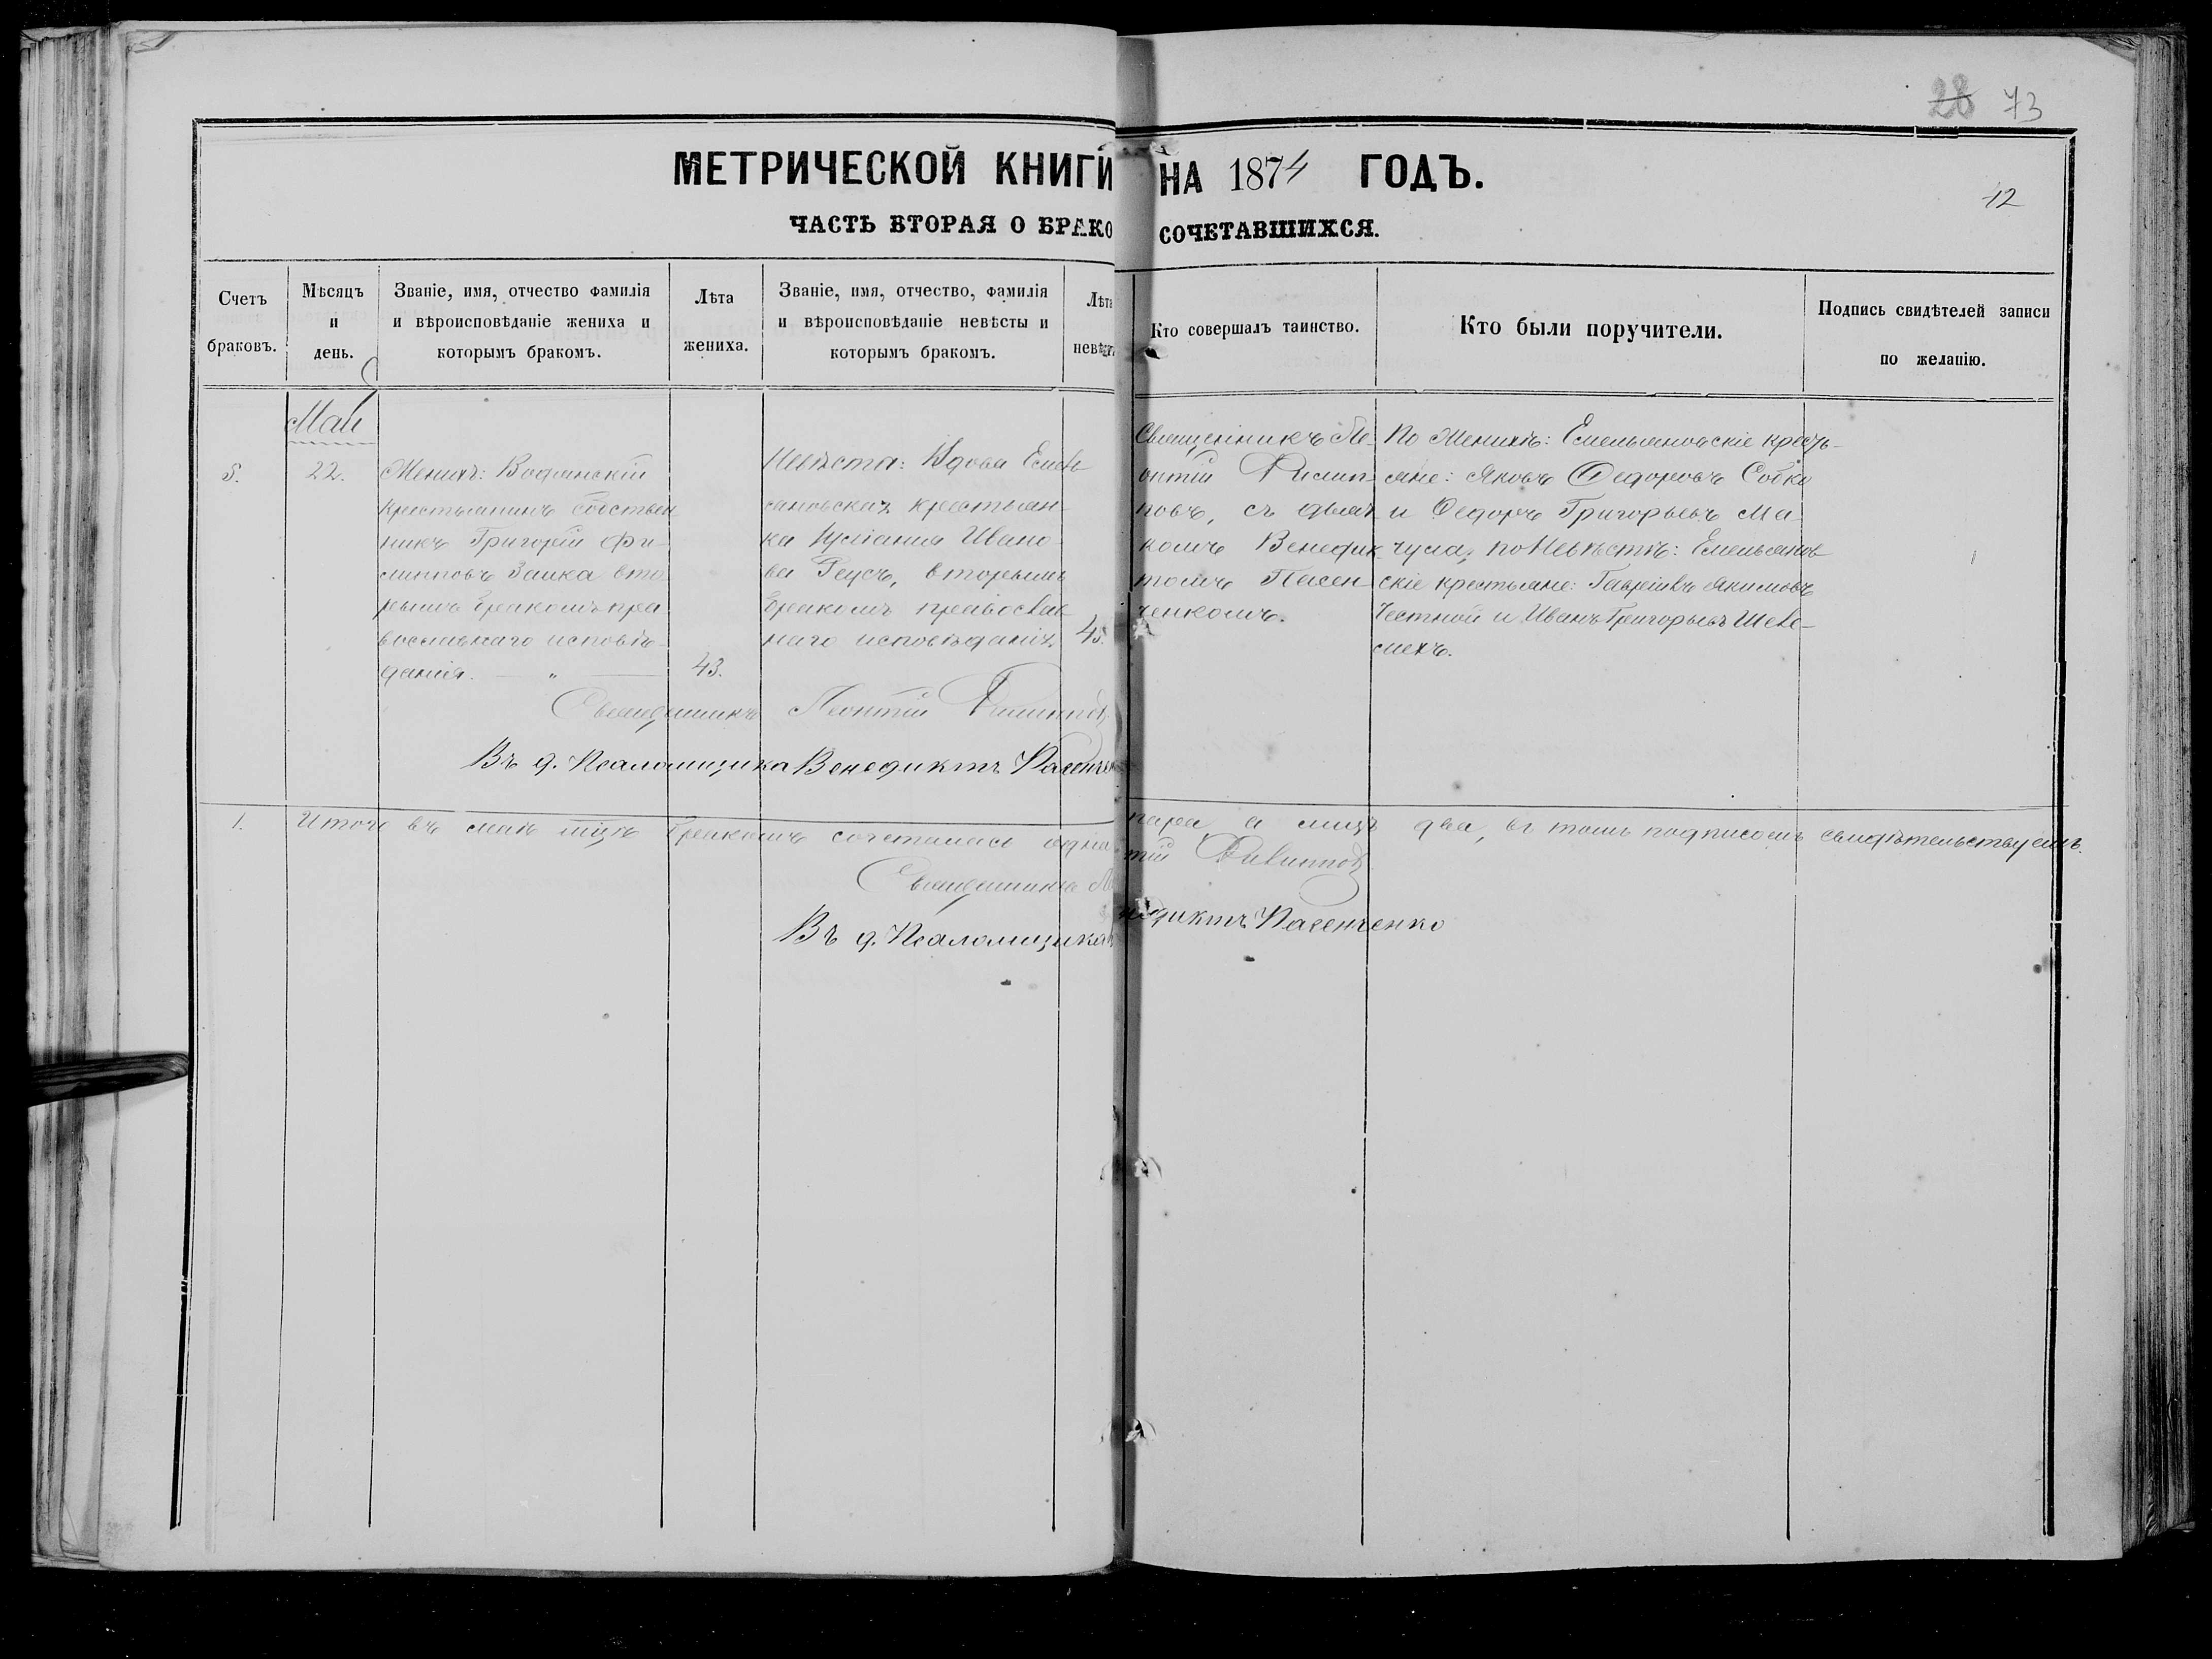 28 73
МЕТРИЧЕСКОЙ КНИГИ НА 1874 ГОДЪ.
42
ЧАСТЬ ВТОРАЯ О БРАКОСОЧЕТАВШИХСЯ.
Счетъ
браковъ.
Мѣсяцъ
и
день.
Званіе, имя, отчество фамилія
и вѣроисповѣданіе жениха и
которымъ бракомъ.
Лѣта
жениха.
Званіе, имя, отчество, фамилія
и вѣроисповѣданіе невѣсты и
которымъ бракомъ.
Лѣта
невѣсты
Кто совершалъ таинство.
Кто были поручители.
Подпись свидѣтелей записи
по желанію.
Май
5.
22.
Женихъ: Водянскій
крестьянинъ собствен
никъ Григорій Фи-
липповъ Заика вто
рымъ бракомъ пра
вославнаго исповѣ-
данія. — „ —
43.
Невѣста: Вдова Емель
яновская крестьян-
ка Іуліанія Ивано-
ва Геусъ, вторымъ
бракомъ православ
наго исповѣданія.
45.
Священникъ Ле-
онтій Филип-
повъ, съ дьяч
комъ Венедик
томъ Пасен-
ченкомъ.
По Женихѣ: Емельяновскіе кресть-
яне: Яковъ Федоровъ Собко
и Федоръ Григорьевъ Ма-
чула, по Невѣстѣ: Емельянов
скіе крестьяне: Гавріилъ Якимовъ
Честной и Иванъ Григорьевъ Шеве-
лехъ.
Священникъ Леонтій Филипповъ
Въ д. Псаломщика Венедиктъ Пасенчен
1.
Итого въ маѣ мцѣ бракомъ сочеталась одна пара, а лицъ два, въ томъ подписомъ свидѣтельствуемъ.
Священникъ Леонтій Филипповъ
Въ д. Псаломщика Венедиктъ Пасенченко